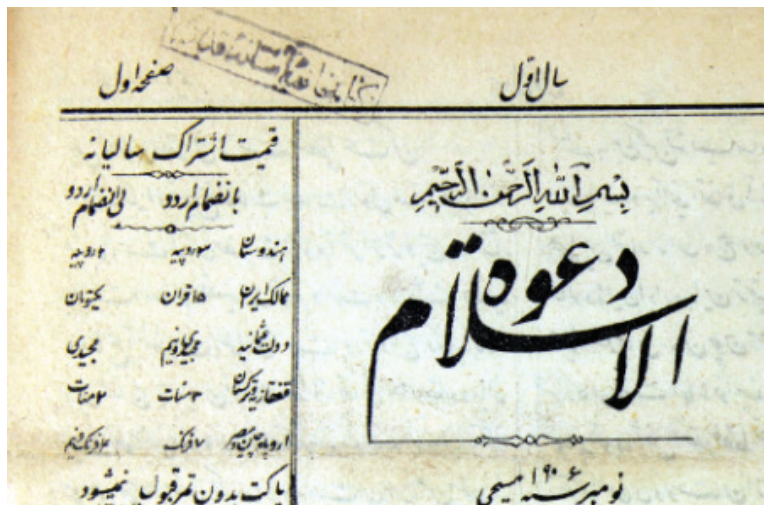 سال اوّل
صفحه اول
بِسْمِ اللهِ الرَّحْمٰنِ الرَّحِيْمِ
دعوة الاسلام
نومبر سنه ۱۹۰۶ مسیحی
قیمت اشتراک سالیانه
بانضمام اردو
هندوستان ۳ روپیه ۲ روپیه
ممالک ایران ۱۵ قران یکتومان
دولت عثمانیه مجیدی و نیم مجیدی
قفقازیه ترکستان ۳ منات ۲ منات
۷ فرنک
پاکت بدون تمر قبول نمیشود